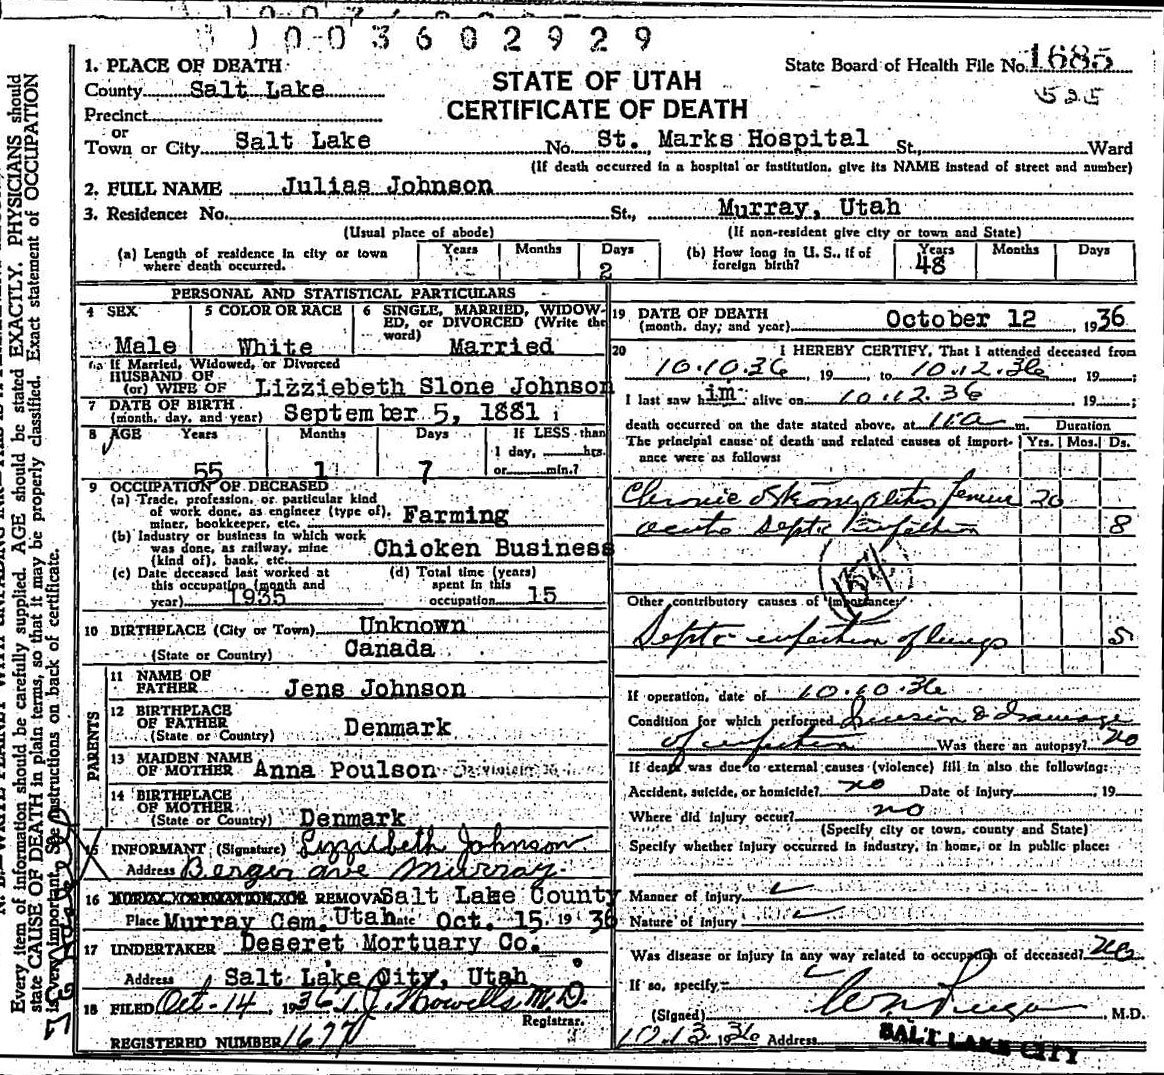 1003602929
1. PLACE OF DEATH
County Salt Lake
Precinct
or
Town or City Salt Lake No. St. Marks Hospital St. Ward
STATE OF UTAH
CERTIFICATE OF DEATH
State Board of Health File No. 1685
525
(If death occurred in a hospital or institution, give its NAME instead of street and number)
2. FULL NAME Julias Johnson
3. Residence: No. St., Murray, Utah
(Usual place of abode) (If non-resident give city or town and State)
(a) Length of residence in city or town where death occurred. Years Months Days 2
(b) How long in U. S., if of foreign birth? Years 48 Months Days
PERSONAL AND STATISTICAL PARTICULARS
4 SEX Male
5 COLOR OR RACE White
6 SINGLE, MARRIED, WIDOWED, or DIVORCED (Write the word) Married
If Married, Widowed, or Divorced
HUSBAND OF
(or) WIFE OF Lizziebeth Slone Johnson
7 DATE OF BIRTH
(month, day, and year) September 5, 1881
8 AGE Years 55 Months 1 Days 7 If LESS than 1 day, hrs. or min.?
9 OCCUPATION OF DECEASED
(a) Trade, profession, or particular kind
of work done, as engineer (type of),
miner, bookkeeper, etc. Farming
(b) Industry or business in which work
was done, as railway, mine
(kind of), bank, etc. Chicken Business
(c) Date deceased last worked at
this occupation (month and
year) 1935
(d) Total time (years)
spent in this
occupation 15
10 BIRTHPLACE (City or Town) Unknown
(State or Country) Canada
PARENTS
11 NAME OF
FATHER Jens Johnson
12 BIRTHPLACE
OF FATHER
(State or Country) Denmark
13 MAIDEN NAME
OF MOTHER Anna Poulson
14 BIRTHPLACE
OF MOTHER
(State or Country) Denmark
15 INFORMANT (Signature) Lizziebeth Johnson
Address Berger ave Murray
16 BURIAL, CREMATION, OR REMOVAL Salt Lake County
Place Murray Cem. Utah Date Oct. 15 19 36
17 UNDERTAKER Deseret Mortuary Co.
Address Salt Lake City, Utah
18 FILED Oct-14, 1936 T. J. Howells M.D.
Registrar.
REGISTERED NUMBER 1677
19 DATE OF DEATH
(month, day, and year) October 12, 1936
20 I HEREBY CERTIFY, That I attended deceased from
10.10.36, 19 to 10.12.36, 19 ;
I last saw him alive on 10.12.36 19 ;
death occurred on the date stated above, at 11 a m. Duration
The principal cause of death and related causes of importance were as follows: Yrs. Mos. Ds.
Chronic Osteomyelitis femur 20
acute Septic Infection 8
Other contributory causes of importance:
Septic infection of lungs 5
If operation, date of 10.10.36
Condition for which performed Incision & drainage
of infection Was there an autopsy? no
If death was due to external causes (violence) fill in also the following:
Accident, suicide, or homicide? no Date of Injury , 19
Where did injury occur? no
(Specify city or town, county and State)
Specify whether injury occurred in industry, in home, or in public place:
Manner of injury
Nature of injury
Was disease or injury in any way related to occupation of deceased? no
If so, specify
(Signed) M.D.
10.13.1936 Address SALT LAKE CITY
Every item of information should be carefully supplied. AGE should be stated EXACTLY. PHYSICIANS should
state CAUSE OF DEATH in plain terms, so that it may be properly classified. Exact statement of OCCUPATION
is very important. See instructions on back of certificate.